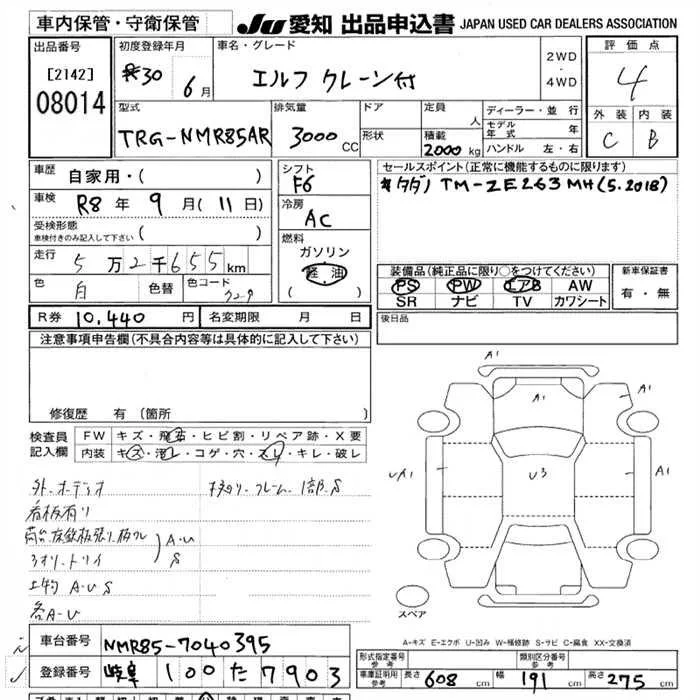 車内保管・守衛保管 JU 愛知 出品申込書 JAPAN USED CAR DEALERS ASSOCIATION
出品番号
[2142]
08014
初度登録年月
30 6月
車名・グレード
エルフ クレーン付
2WD
・
4WD
評価点
4
外装 内装
C B
型式
TRG-NMR85AR
排気量
3000 CC
ドア
形状
定員 人
積載 2000 kg
ディーラー・並行
モデル年式 年
ハンドル 左・右
車歴 自家用・( )
車検 R8年 9月(11日)
受検形態
車検付きのみ記入して下さい ( )
走行 5万2千655km
色 白 色替 色コード
シフト
F6
冷房
AC
燃料
ガソリン
軽油
( )
セールスポイント(正常に機能するものに限ります)
タダノ TM-ZE263MH(5.2018)
装備品(純正品に限り○をつけてください)
PS PW エアB AW
SR ナビ TV カワシート
新車保証書
有・無
R券 10,440円 名変期限 月 日
後日品
注意事項申告欄(不具合内容等は具体的に記入して下さい)
修復歴 有(箇所 )
検査員記入欄
FW キズ・飛石・ヒビ割・リペア跡・X要
内装 キズ・汚レ・コゲ・穴・スレ・キレ・破レ
外.オーディオ
看板有り
荷台.床鉄板張り.板ワレ
A・U
S
上物 A・U S
各A-U
フレーム一部S
A1
A1
A1
A1
A1
U3
スペア
A-キズ E-エクボ U-凹み W-補修跡 S-サビ C-腐食 XX-交換済
車台番号 NMR85-7040395
登録番号 岐阜 100 た 7903
形式指定番号
参考
類別区分番号
参考
車庫証明用
参考
長さ 608cm 幅 191cm 高さ 275cm